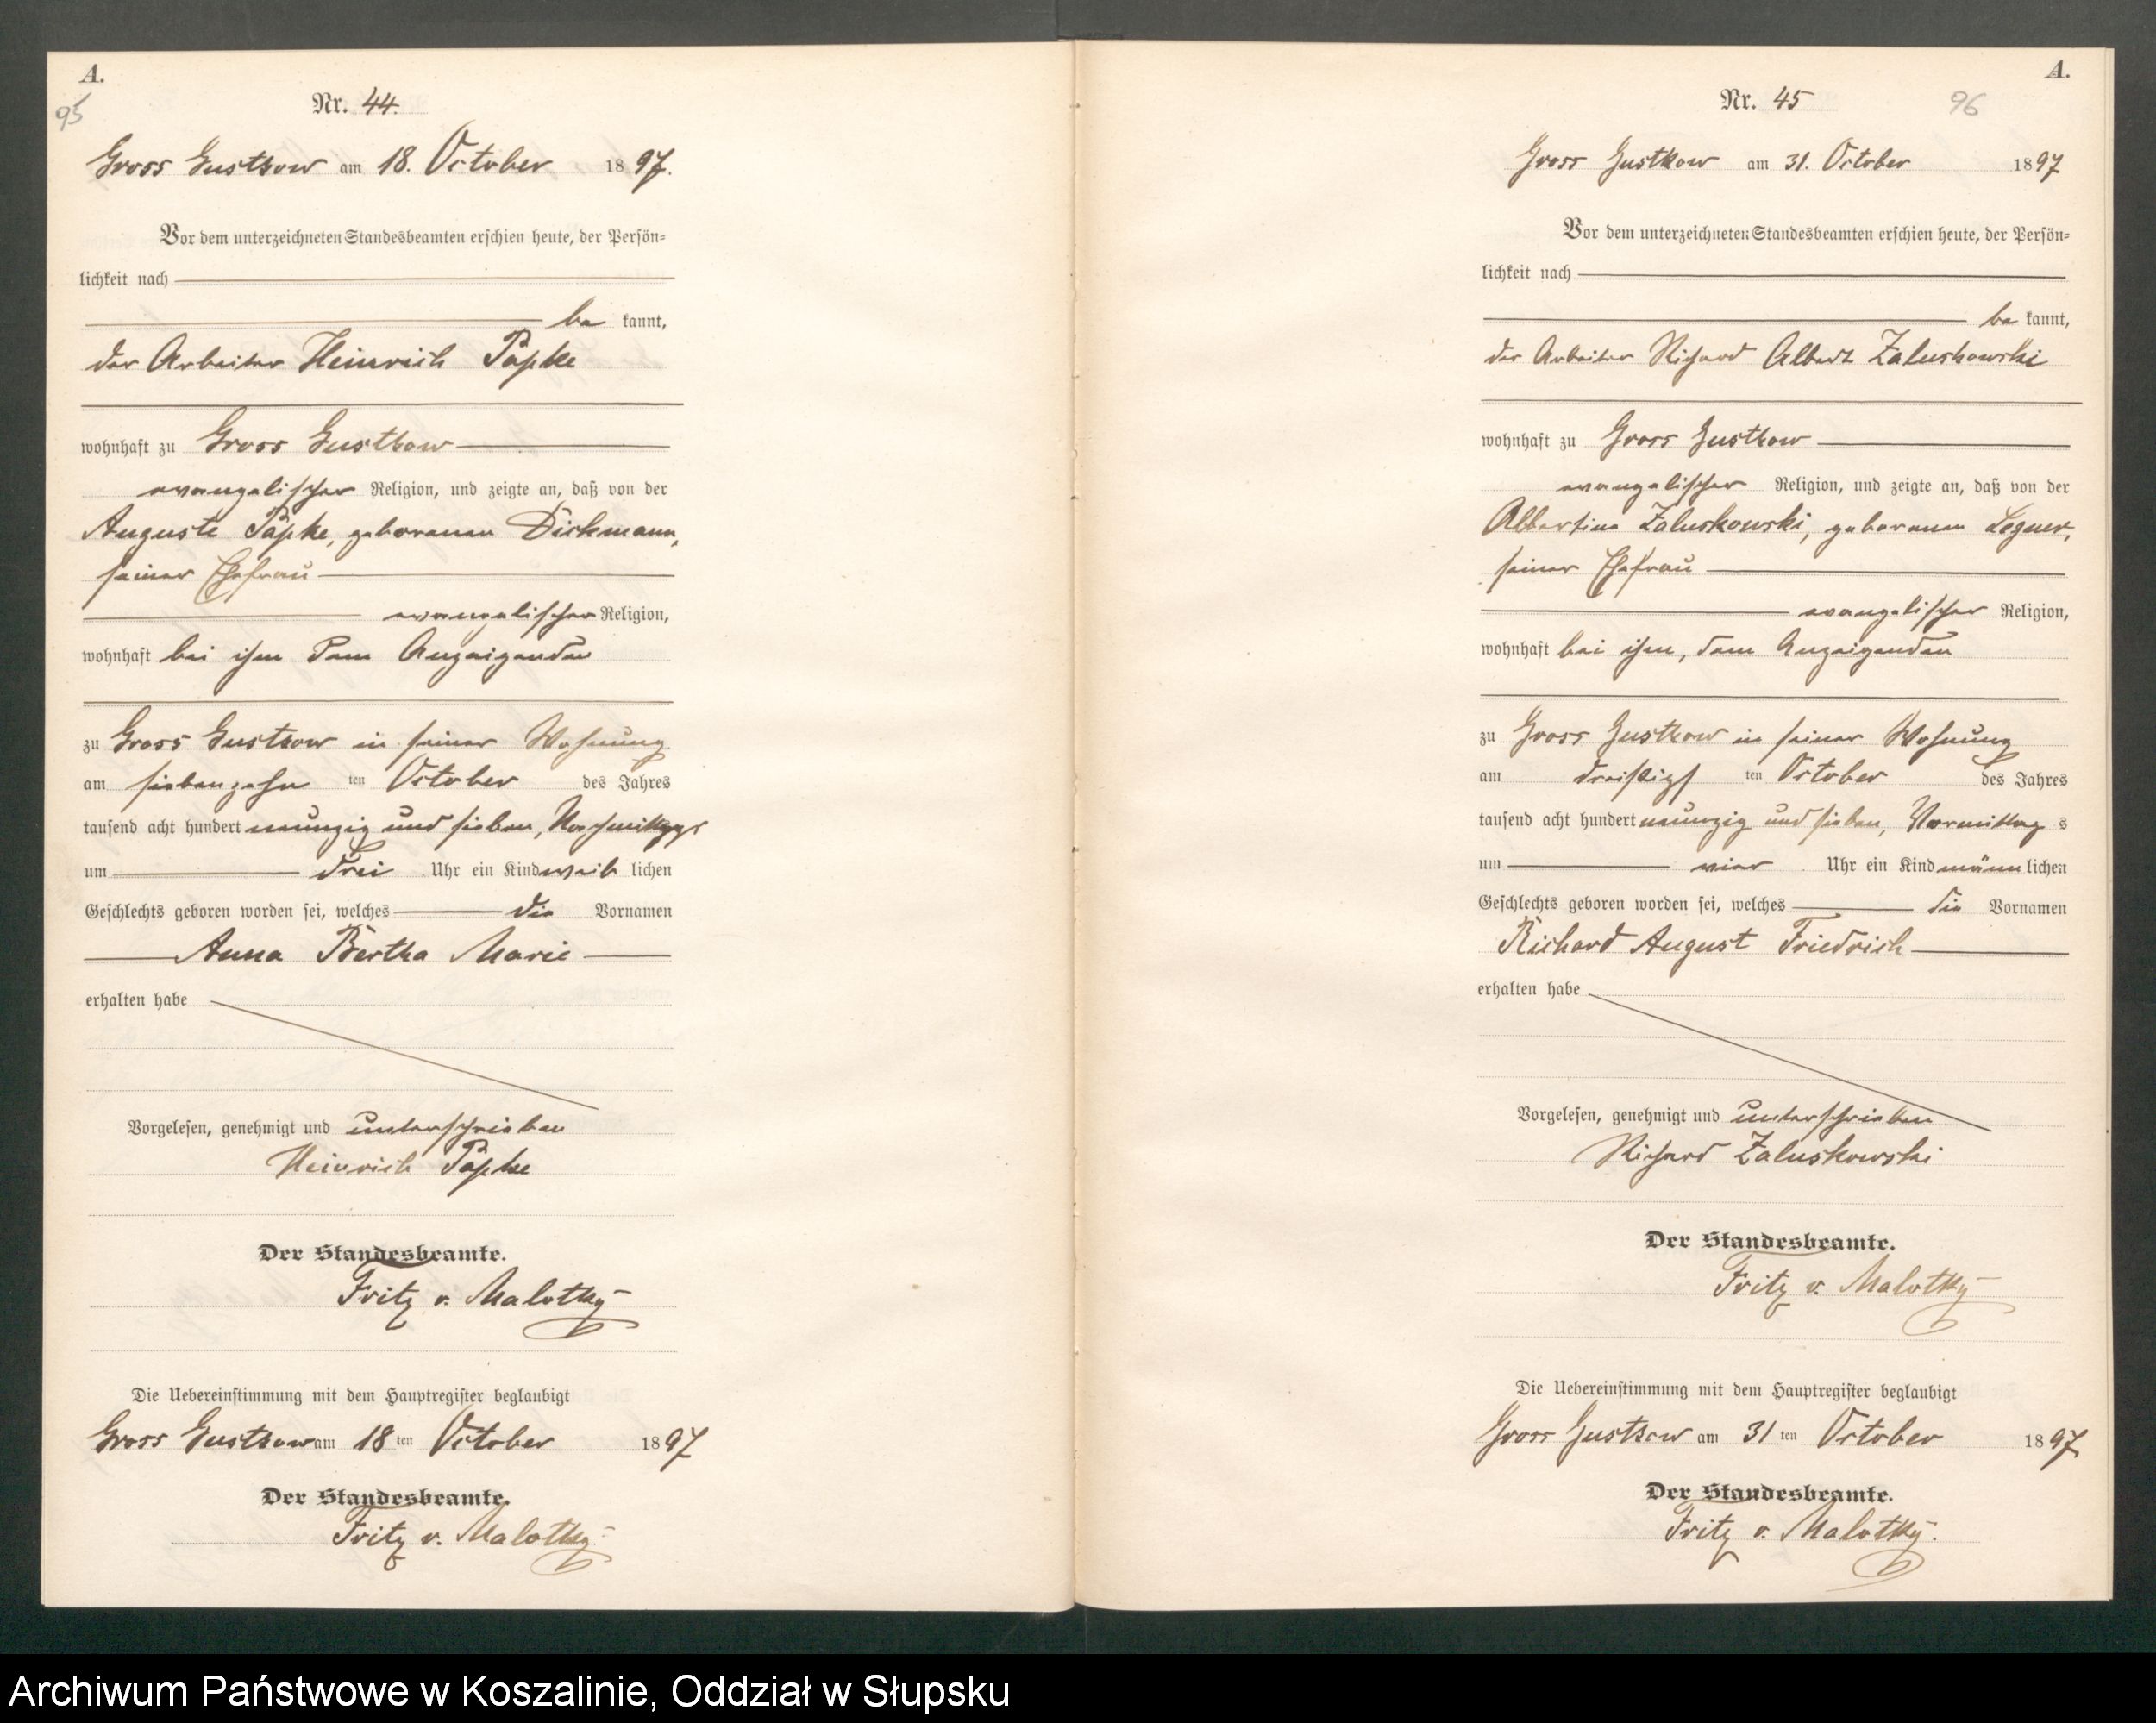 A.
95
Nr. 44.
Gross Gustkow am 18. October 1897.
Vor dem unterzeichneten Standesbeamten erschien heute, der Persön=
lichkeit nach
be kannt,
der Arbeiter Heinrich Päpke
wohnhaft zu Gross Gustkow
evangelischer Religion, und zeigte an, daß von der
Auguste Päpke, geborenen Dickmann,
seiner Ehefrau
evangelischer Religion,
wohnhaft bei ihm dem Anzeigenden
zu Gross Gustkow in seiner Wohnung
am siebenzehn ten October des Jahres
tausend acht hundert neunzig und sieben, Nachmittags
um drei Uhr ein Kind weib lichen
Geschlechts geboren worden sei, welches die Vornamen
Anna Bertha Marie
erhalten habe
Vorgelesen, genehmigt und unterschrieben
Heinrich Päpke
Der Standesbeamte.
Fritz v. Malotky
Die Uebereinstimmung mit dem Hauptregister beglaubigt
Gross Gustkow am 18 ten October 1897
Der Standesbeamte.
Fritz v. Malotky.
A.
Nr. 45
96
Gross Gustkow am 31. October 1897
Vor dem unterzeichneten Standesbeamten erschien heute, der Persön=
lichkeit nach
be kannt,
der Arbeiter Richard Albert Zaluskowski
wohnhaft zu Gross Gustkow
evangelischer Religion, und zeigte an, daß von der
Albertine Zaluskowski, geborenen Legner,
seiner Ehefrau
evangelischer Religion,
wohnhaft bei ihm, dem Anzeigenden
zu Gross Gustkow in seiner Wohnung
am dreißigs ten October des Jahres
tausend acht hundert neunzig und sieben, Vormittag s
um vier Uhr ein Kind männ lichen
Geschlechts geboren worden sei, welches die Vornamen
Richard August Friedrich
erhalten habe
Vorgelesen, genehmigt und unterschrieben
Richard Zaluskowski
Der Standesbeamte.
Fritz v. Malotky
Die Uebereinstimmung mit dem Hauptregister beglaubigt
Gross Gustkow am 31 ten October 1897
Der Standesbeamte.
Fritz v. Malotky.
Archiwum Państwowe w Koszalinie, Oddział w Słupsku